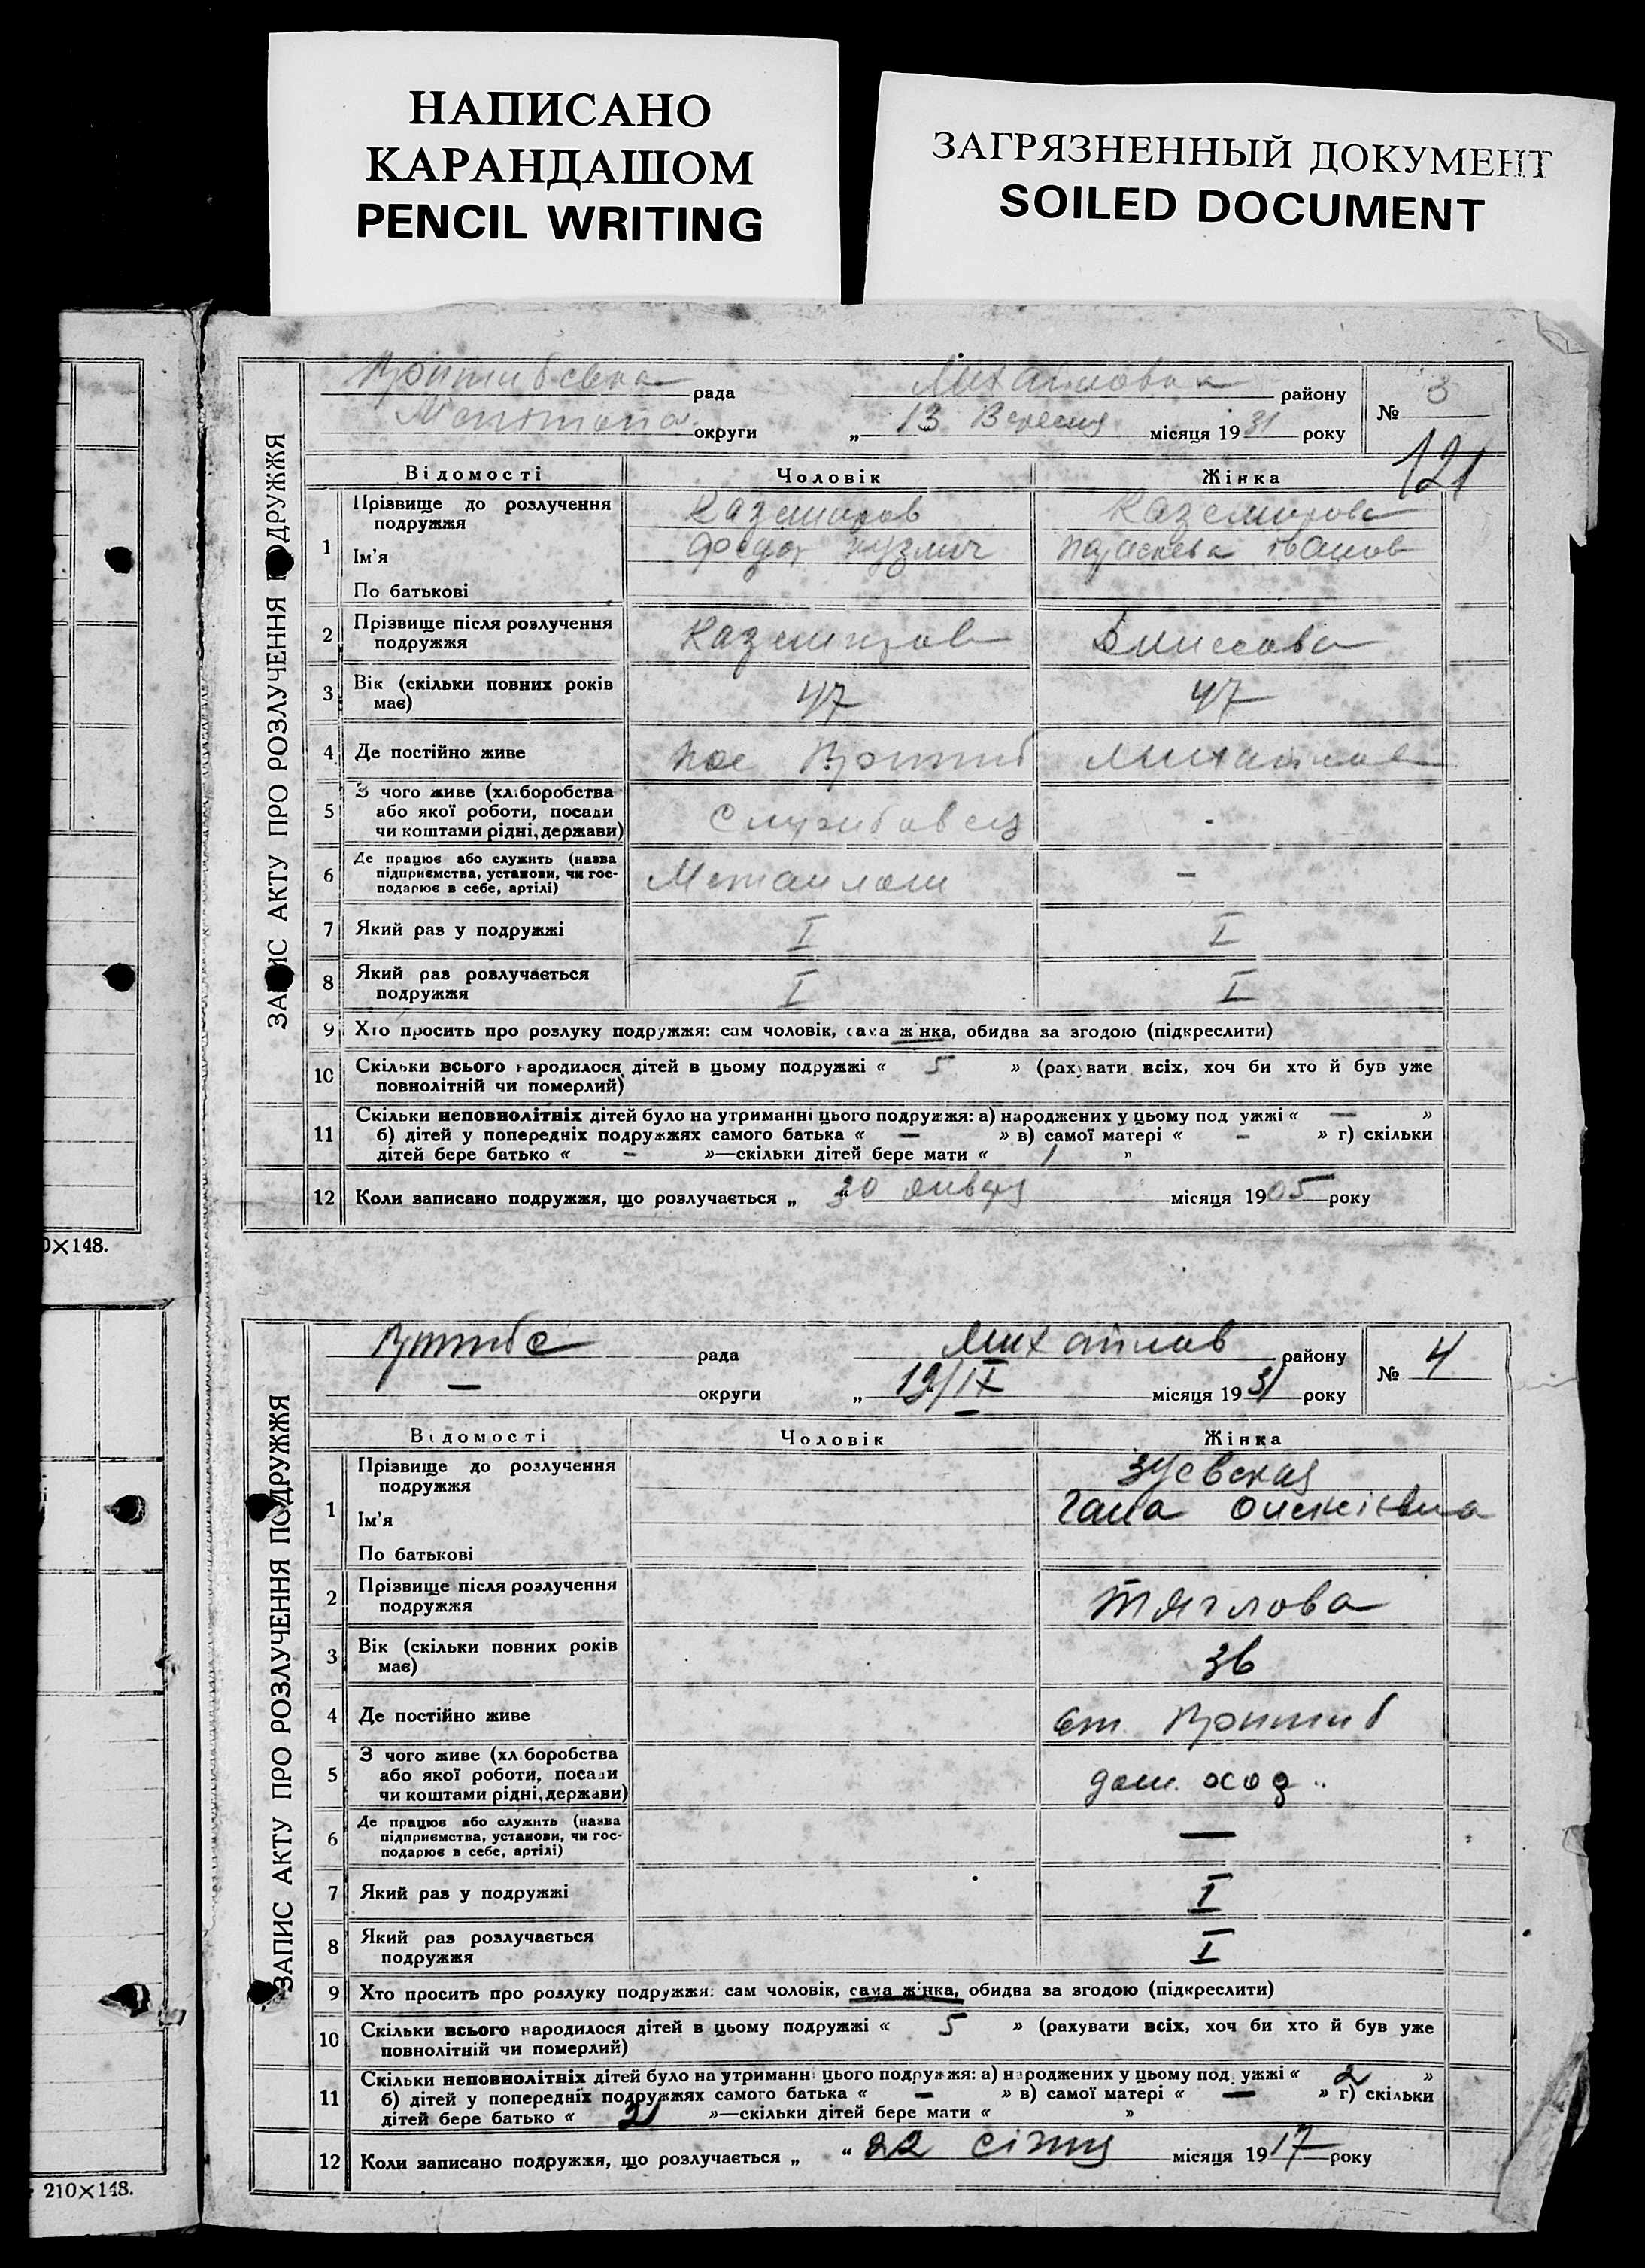 НАПИСАНО
КАРАНДАШОМ
PENCIL WRITING
ЗАГРЯЗНЕННЫЙ ДОКУМЕНТ
SOILED DOCUMENT
0×148.
210×148.
ЗАПИС АКТУ ПРО РОЗЛУЧЕННЯ ПОДРУЖЖЯ
рада району № 3
округи „ 13 Вересня місяця 1931 року
121
Відомості Чоловік Жінка
1 Прізвище до розлучення подружжя Каземиров Каземирова
Ім'я Федор Кузмич Параскева Іванов
По батькові
2 Прізвище після розлучення
подружжя Каземиров
3 Вік (скільки повних років
має) 47 47
4 Де постійно живе пос Михайлов
5 З чого живе (хліборобства
або якої роботи, посади
чи коштами рідні, держави) Службовец -
6 Де працює або служить (назва
підприємства, установи, чи гос-
подарює в себе, артілі) -
7 Який раз у подружжі I I
8 Який раз розлучається
подружжя I I
9 Хто просить про розлуку подружжя: сам чоловік, сама жінка, обидва за згодою (підкреслити)
10 Скільки всього народилося дітей в цьому подружжі « 5 » (рахувати всіх, хоч би хто й був уже
повнолітній чи померлий)
11 Скільки неповнолітніх дітей було на утриманні цього подружжя: а) народжених у цьому подружжі « — »
б) дітей у попередніх подружжях самого батька « — » в) самої матері « - » г) скільки
дітей бере батько « - »—скільки дітей бере мати « 1 »
12 Коли записано подружжя, що розлучається „ 30 января місяця 1905 року
ЗАПИС АКТУ ПРО РОЗЛУЧЕННЯ ПОДРУЖЖЯ
рада Михайлов району № 4
— округи „ 19/IX місяця 1931 року
Відомості Чоловік Жінка
1 Прізвище до розлучення
подружжя Зуевская
Ім'я Гана Олексіївна
По батькові
2 Прізвище після розлучення
подружжя Тяглова
3 Вік (скільки повних років
має) 36
4 Де постійно живе ст.
5 З чого живе (хліборобства
або якої роботи, посади
чи коштами рідні, держави) дом. хоз..
6 Де працює або служить (назва
підприємства, установи, чи гос-
подарює в себе, артілі) —
7 Який раз у подружжі I
8 Який раз розлучається
подружжя I
9 Хто просить про розлуку подружжя: сам чоловік, сама жінка, обидва за згодою (підкреслити)
10 Скільки всього народилося дітей в цьому подружжі « 5 » (рахувати всіх, хоч би хто й був уже
повнолітній чи померлий)
11 Скільки неповнолітніх дітей було на утриманні цього подружжя: а) народжених у цьому подружжі « 2 »
б) дітей у попередніх подружжях самого батька « — » в) самої матері « — » г) скільки
дітей бере батько « »—скільки дітей бере мати « »
12 Коли записано подружжя, що розлучається „ “ 22 січня місяця 1917 року